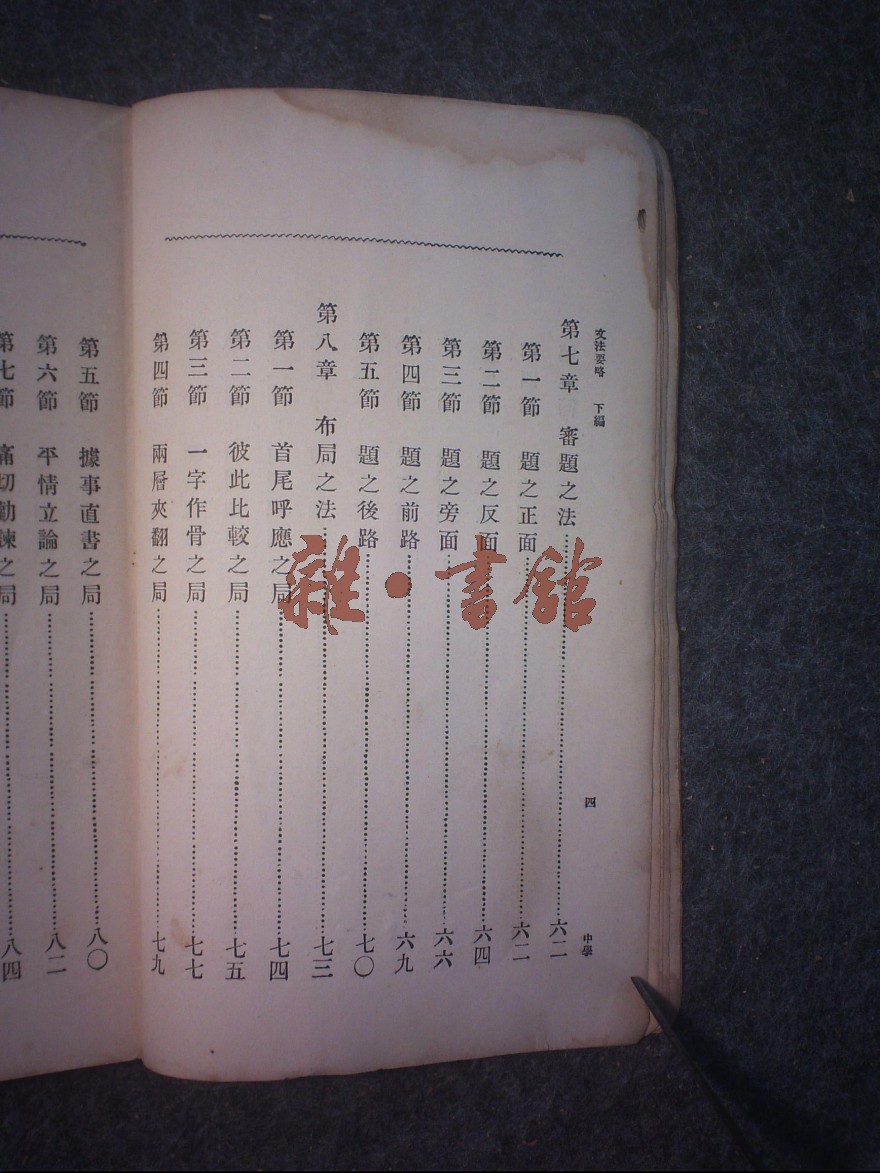 文法要略　下編
四
中學
第七章　審題之法……六二
第一節　題之正面……六二
第二節　題之反面……六四
第三節　題之旁面……六六
第四節　題之前路……六九
第五節　題之後路……七〇
第八章　布局之法……七三
第一節　首尾呼應之局……七四
第二節　彼此比較之局……七五
第三節　一字作骨之局……七七
第四節　兩層夾翻之局……七九
第五節　據事直書之局……八〇
第六節　平情立論之局……八二
第七節　痛切勸諫之局……八四
雜·書館